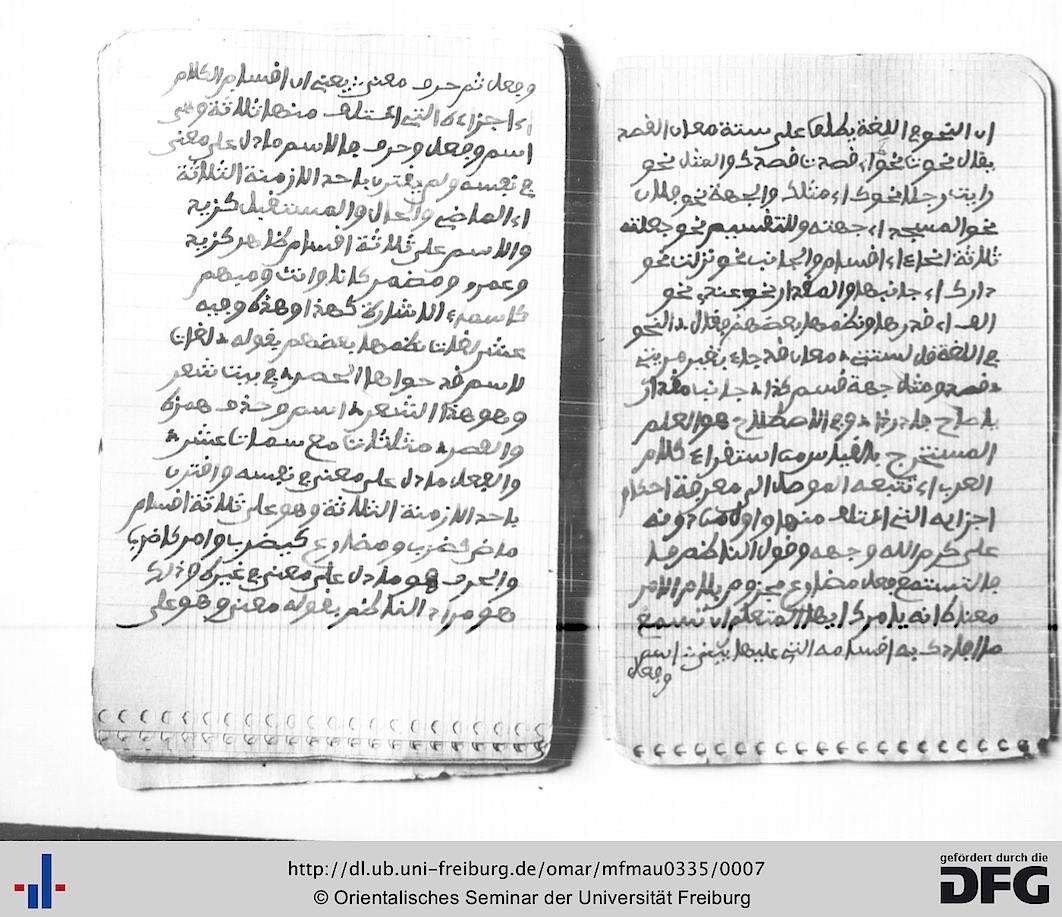 ان النحو في اللغة يطلق على ستة معان القصد
يقال نحوت نحوك اي قصدت قصدك والمثل نحو
رايت رجلا نحوك اي مثلك والجهة نحو ملت
نحو المسجد اي جهته وللتقسيم نحو جعلته
ثلاثة انحاء اي اقسام والجانب نحو نزلت نحو
دارك اي جانبها والمقدار نحو عندي نحو
الف اي قدرها ونظمها بعضهم فقال النحو
في اللغة قل لستة معان قد جاء بغير مرية
قصد ومثل جهة قسم كذا جانب مقدار
وفي الاصطلاح هو العلم
المستخرج بالقياس من استقراء كلام
العرب اي تتبعه الموصل الى معرفة احكام
اجزايه التي ائتلف منها واول من دونه
على كرم الله وجهه وقول الناظم
فالتستمع فعل مضارع مجزوم بلام الامر
معناه انه يامرك ايها المتعلم ان تسمع
ما افادك به اقسامه التي عليها يبنى اسم
وفعل
وفعل ثم حرف معنى يعني ان اقسام الكلام
اي اجزاءه التي ائتلف منها ثلاثة وهي
اسم وفعل وحرف فالاسم ما دل على معنى
في نفسه ولم يقترن باحد الازمنة الثلاثة
اي الماضي والحال والمستقبل كزيد
والاسم على ثلاثة اقسام ظاهر كزيد
وعمرو ومضمر كانا وانت ومبهم
كاسماء الاشارة كهذا وهذه وفيه
عشر لغات نظمها بعضهم بقوله لغات
الاسم قد حواها الحصر في بيت شعر
وهو هذا الشعر اسم وحذف همزه
والقصر مثلثات مع سمات عشر
والفعل ما دل على معنى في نفسه واقترن
باحد الازمنة الثلاثة وهو على ثلاثة اقسام
ماض كضرب ومضارع كيضرب وامر كاضرب
والحرف هو ما دل على معنى في غيره وذلك
هو مراد الناظم بقوله معنى وهو على
http://dl.ub.uni-freiburg.de/omar/mfmau0335/0007
© Orientalisches Seminar der Universität Freiburg
gefördert durch die
DFG